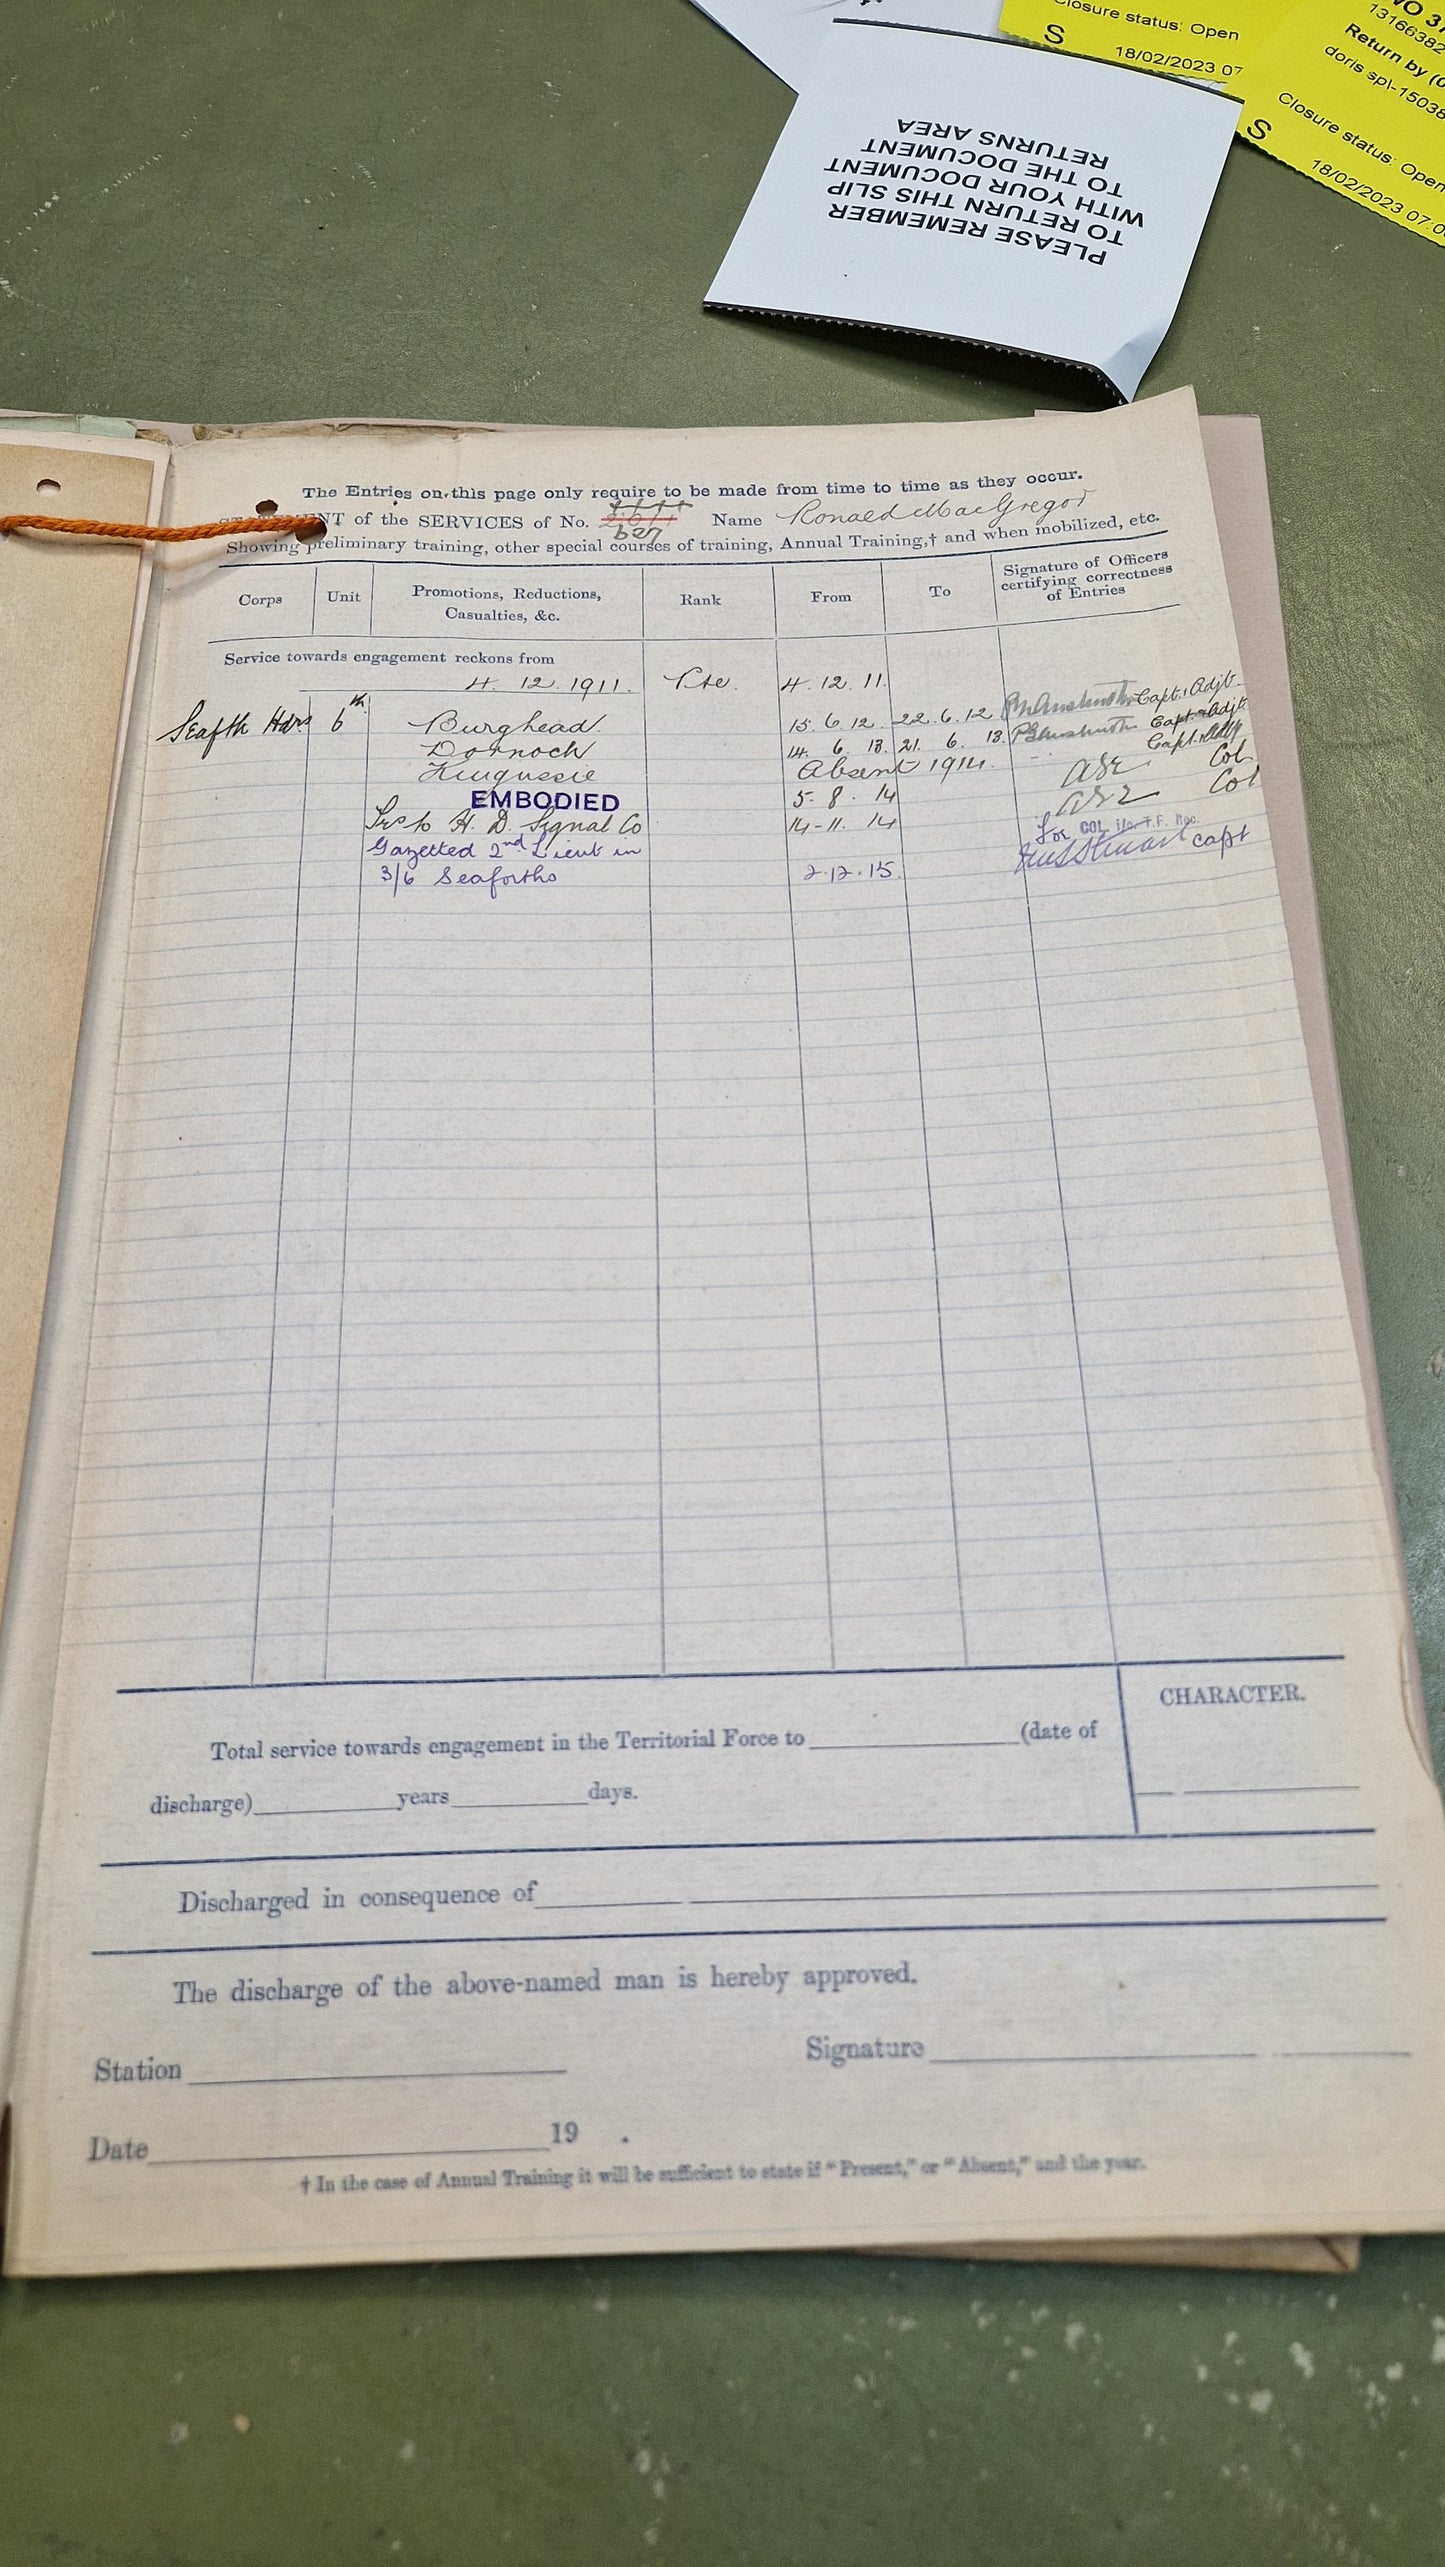 Closure status: Open
S
18/02/2023 07
WO 37
13166382
Return by (0
doris spl-15038
Closure status: Open
S
18/02/2023 07:0
PLEASE REMEMBER
TO RETURN THIS SLIP
WITH YOUR DOCUMENT
TO THE DOCUMENT
RETURNS AREA
The Entries on this page only require to be made from time to time as they occur.
of the SERVICES of No. 627 Name Ronald MacGregor
Showing preliminary training, other special courses of training, Annual Training,† and when mobilized, etc.
Corps Unit Promotions, Reductions, Casualties, &c. Rank From To Signature of Officers certifying correctness of Entries
Service towards engagement reckons from
4. 12. 1911. Pte. 4. 12. 11.
Seafth Hdrs 6th Burghead 15. 6. 12 22. 6. 12 Capt. & Adjt.
Dornoch 14. 6. 13. 21. 6. 13. Capt. & Adjt
Kingussie Absent 1914. Capt. & Adjt
EMBODIED 5. 8. 14 Col
Trs to H. D. Signal Co 14-11. 14 Col
Gazetted 2nd Lieut in for COL. i/c. T.F. Rec.
3/6 Seaforths 2.12.15. Stewart capt
CHARACTER.
Total service towards engagement in the Territorial Force to (date of
discharge) years days.
Discharged in consequence of
The discharge of the above-named man is hereby approved.
Station Signature
Date 19 .
† In the case of Annual Training it will be sufficient to state if "Present," or "Absent," and the year.